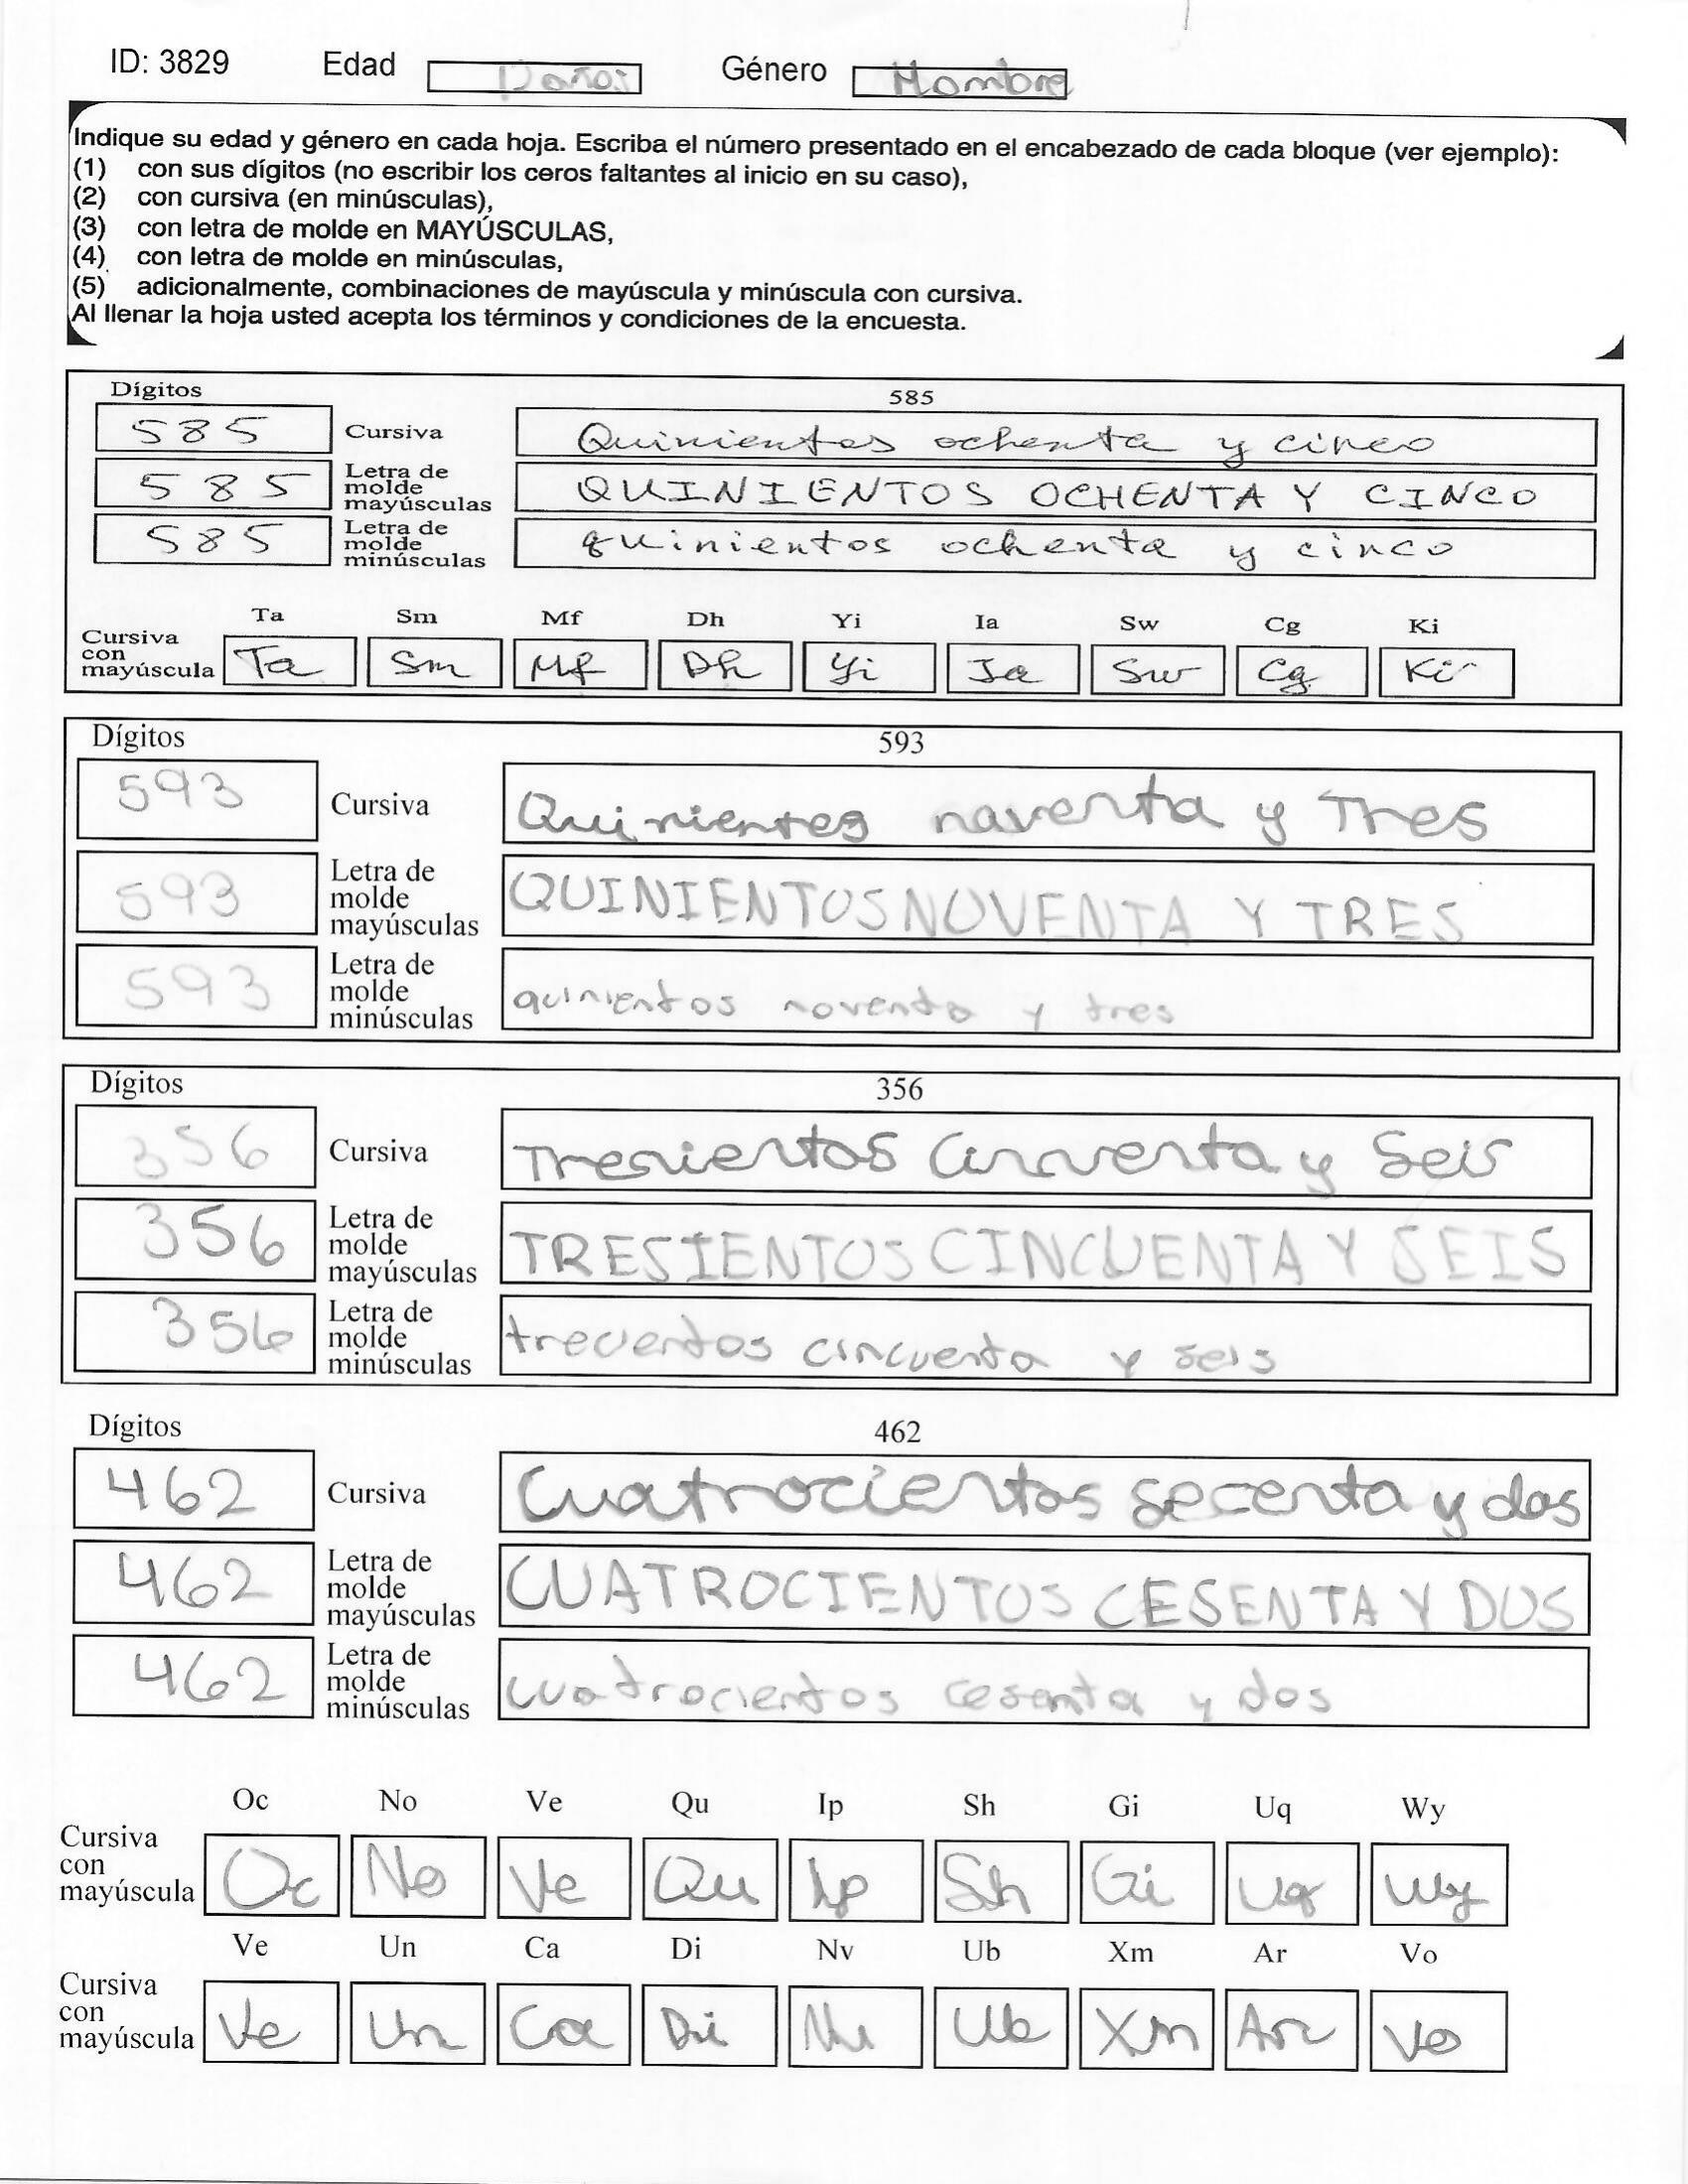 ID: 3829 Edad años Género Hombre
Indique su edad y género en cada hoja. Escriba el número presentado en el encabezado de cada bloque (ver ejemplo):
(1) con sus dígitos (no escribir los ceros faltantes al inicio en su caso),
(2) con cursiva (en minúsculas),
(3) con letra de molde en MAYÚSCULAS,
(4) con letra de molde en minúsculas,
(5) adicionalmente, combinaciones de mayúscula y minúscula con cursiva.
Al llenar la hoja usted acepta los términos y condiciones de la encuesta.
Dígitos 585
585 Cursiva Quinientos ochenta y cinco
585 Letra de molde mayúsculas QUINIENTOS OCHENTA Y CINCO
585 Letra de molde minúsculas quinientos ochenta y cinco
Ta Sm Mf Dh Yi Ia Sw Cg Ki
Cursiva con mayúscula Ta Sm Mf Dh Yi Ia Sw Cg Ki
Dígitos 593
593 Cursiva Quinientes naventa y Tres
593 Letra de molde mayúsculas QUINIENTOS NOVENTA Y TRES
593 Letra de molde minúsculas quinientos noventa y tres
Dígitos 356
356 Cursiva y Seis
356 Letra de molde mayúsculas TRESIENTOS CINCUENTA Y SEIS
356 Letra de molde minúsculas cincuenta y seis
Dígitos 462
462 Cursiva Cuatrocientos secenta y dos
462 Letra de molde mayúsculas CUATROCIENTOS CESENTA Y DOS
462 Letra de molde minúsculas cuatrocientos cesenta y dos
Oc No Ve Qu Ip Sh Gi Uq Wy
Cursiva con mayúscula Oc No Ve Qu Ip Sh Gi Uq Wy
Ve Un Ca Di Nv Ub Xm Ar Vo
Cursiva con mayúscula Ve Un Ca Di Nv Ub Xm Ar Vo